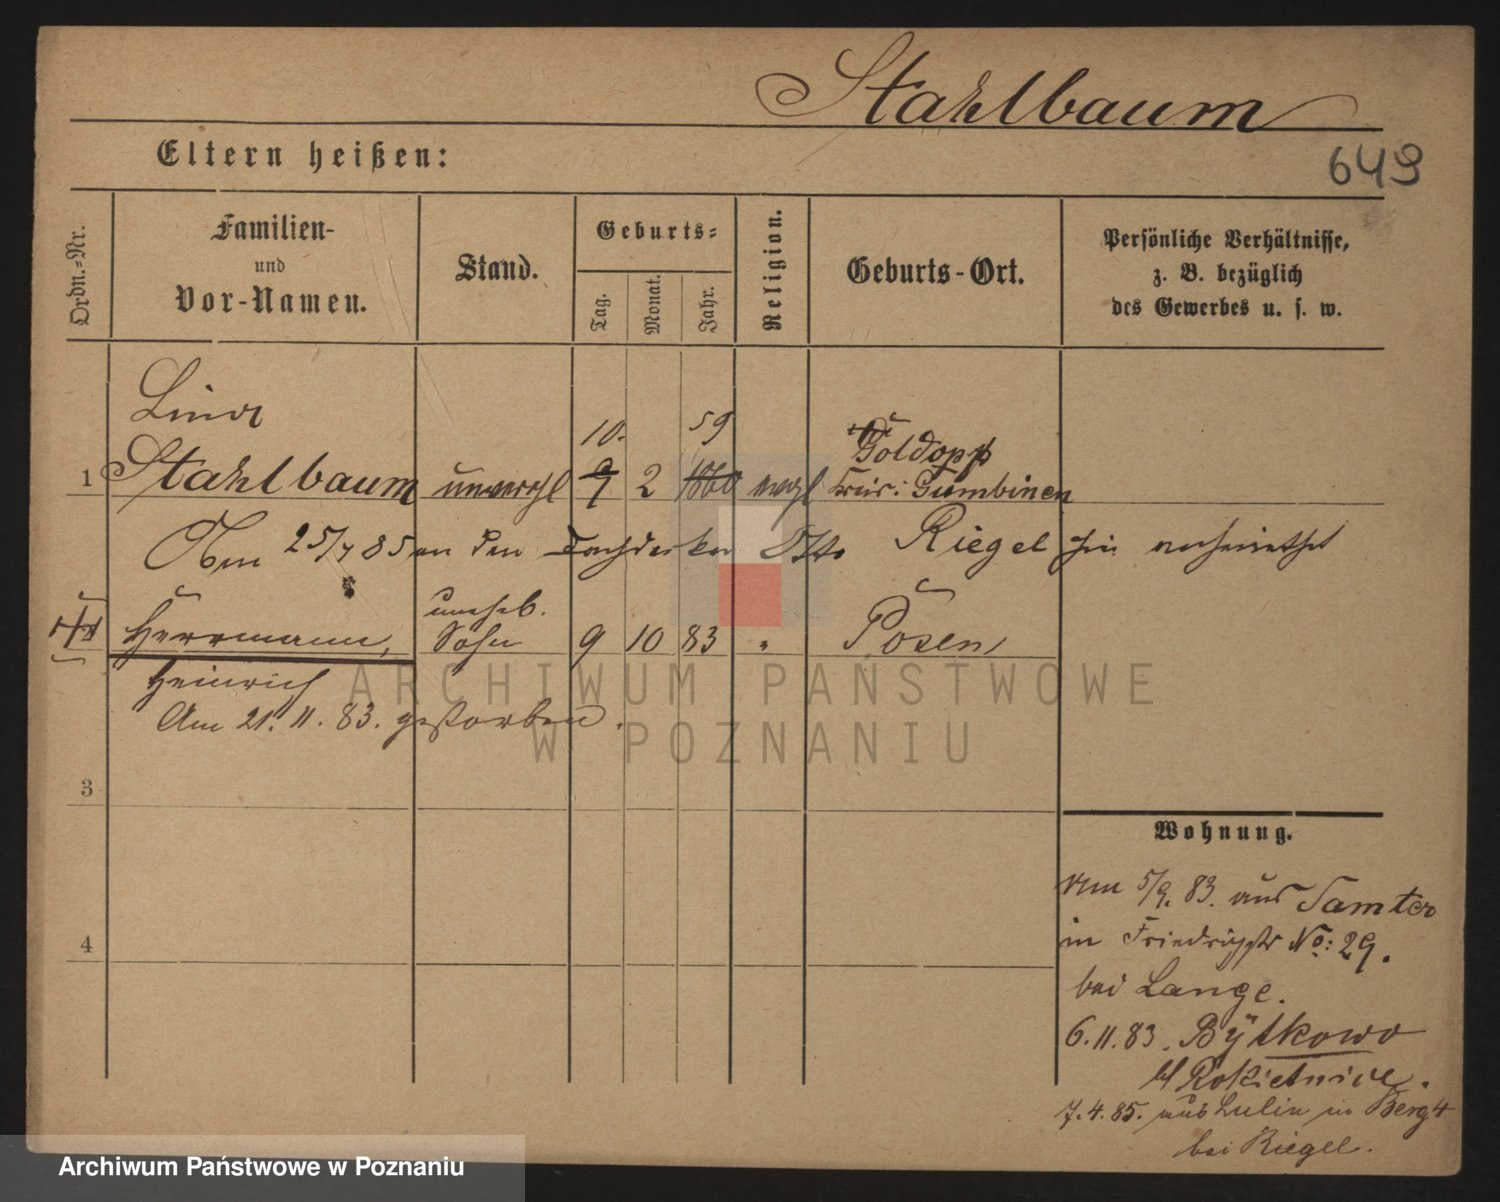 Stahlbaum
649
Eltern heißen:
Ordn.-Nr.
Familien-
und
Vor-Namen.
Stand.
Geburts-
Tag.
Monat.
Jahr.
Religion.
Geburts-Ort.
Persönliche Verhältnisse,
z. B. bezüglich
des Gewerbes u. s. w.
Lina
10. 59
Goldapp
1 Stahlbaum unverehl 9 2 1860 evgl Kreis: Gumbinen
Am 25/7 85 an den Dachdecker Otto Riegel hier verheirathet
unehel.
2 Herrmann, Sohn 9 10 83 " Posen
Heinrich
Am 21. 11. 83. gestorben.
3
4
Wohnung.
Am 5/9. 83. aus Samter
in Friedrichstr No: 29.
bei Lange.
6. 11. 83. Bÿtkowo
b/ Rokietnice.
7. 4. 85. aus Lulin in Berg 4
bei Riegel.
ARCHIWUM PAŃSTWOWE
W POZNANIU
Archiwum Państwowe w Poznaniu